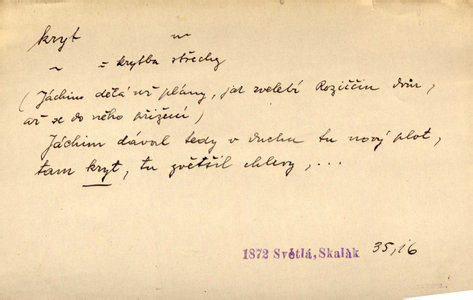 kryt m
~ = krytba střechy
(Jáchim dělá už plány, jak zvelebí Rozičin dvůr,
až se do něho přižení)
Jáchim dával tedy v duchu tu nový plot,
tam kryt, tu zvětšil chlevy, ...
1872 Světlá, Skalák 35,16